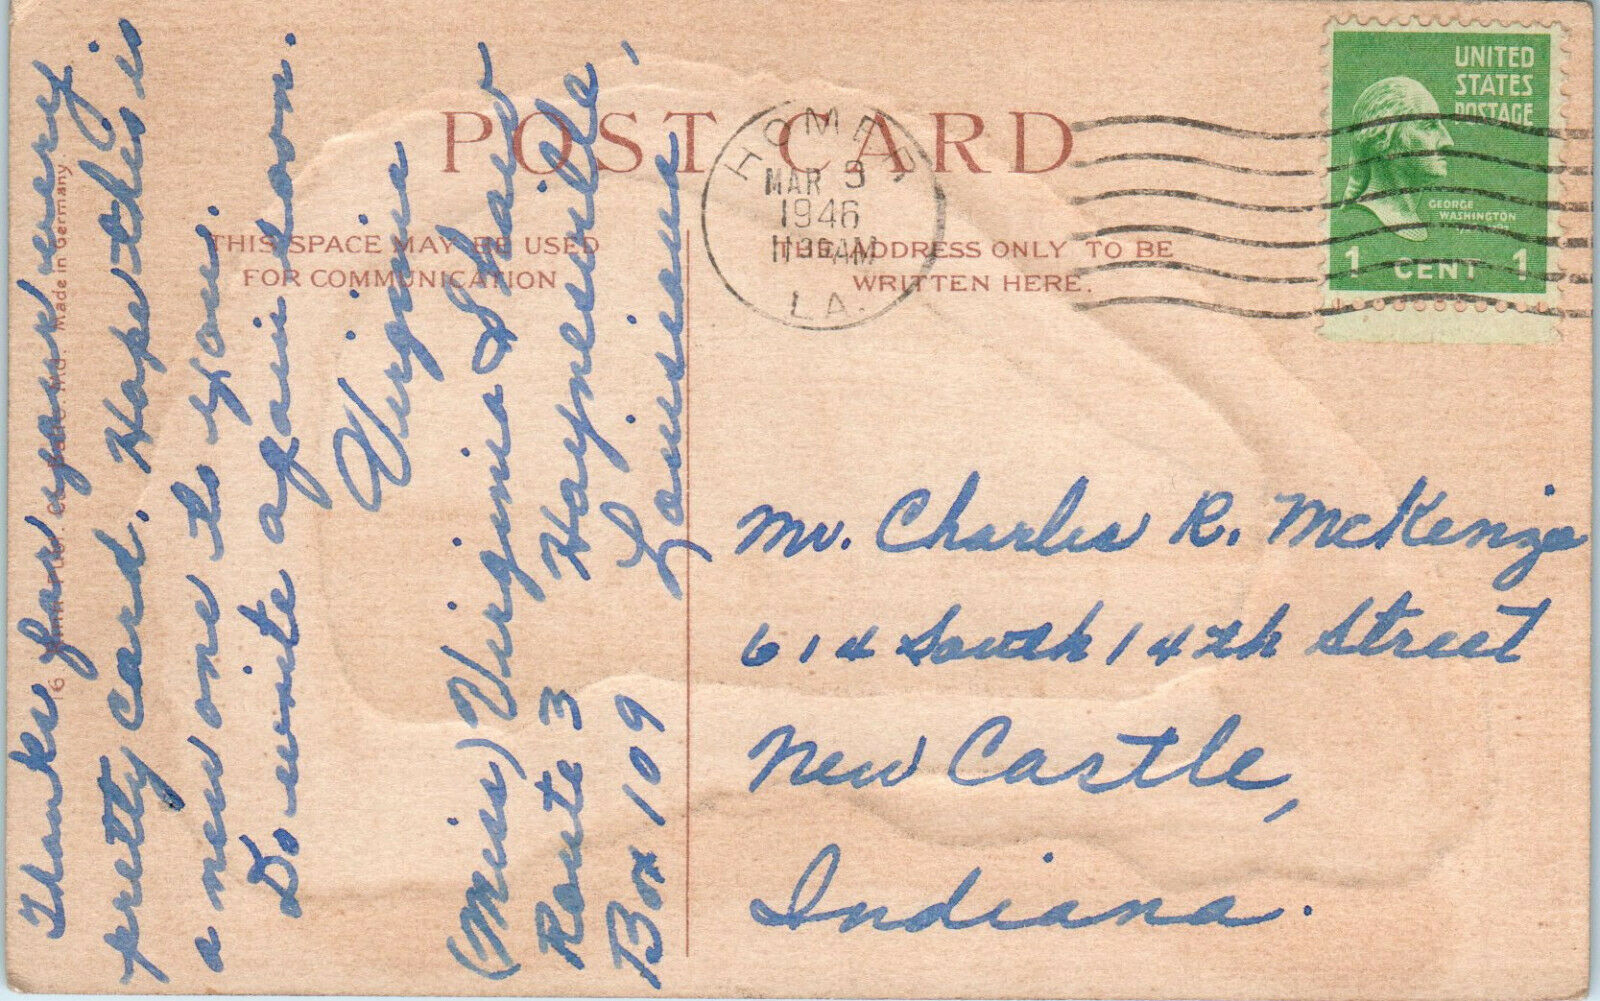 POST CARD
THIS SPACE MAY BE USED
FOR COMMUNICATION
THE ADDRESS ONLY TO BE
WRITTEN HERE.
HOMER
MAR 9
1946
LA.
UNITED
STATES
POSTAGE
GEORGE
WASHINGTON
1 CENT 1
Thanks for your very
pretty card. Hope this is
a new one to you.
Do write again soon.
Virginia
(Miss) Virginia Shaw
Route 3 Haynesville,
Box 109 Louisiana
Mr. Charles R. McKenzie
614 South 14th Street
New Castle,
Indiana.
Made in Germany.